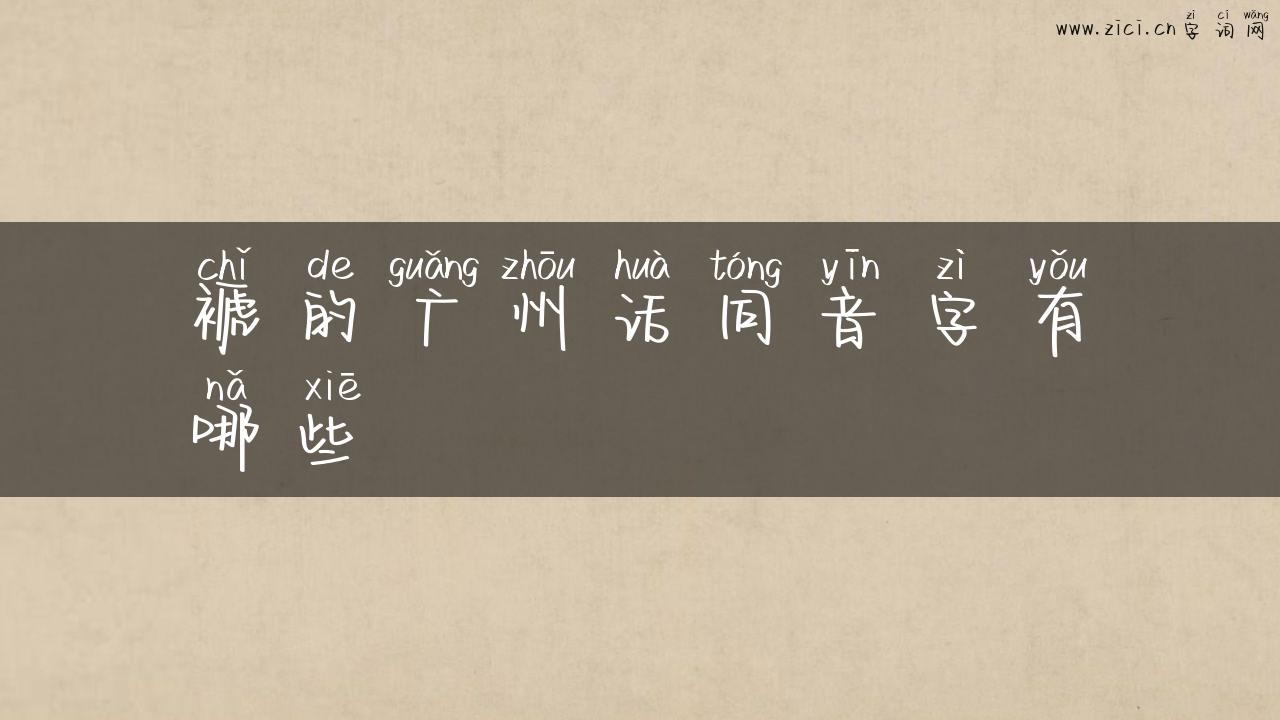 zì cí wǎng
www.zici.cn 字词网
chǐ de guǎng zhōu huà tóng yīn zì yǒu
褫的广州话同音字有
nǎ xiē
哪些